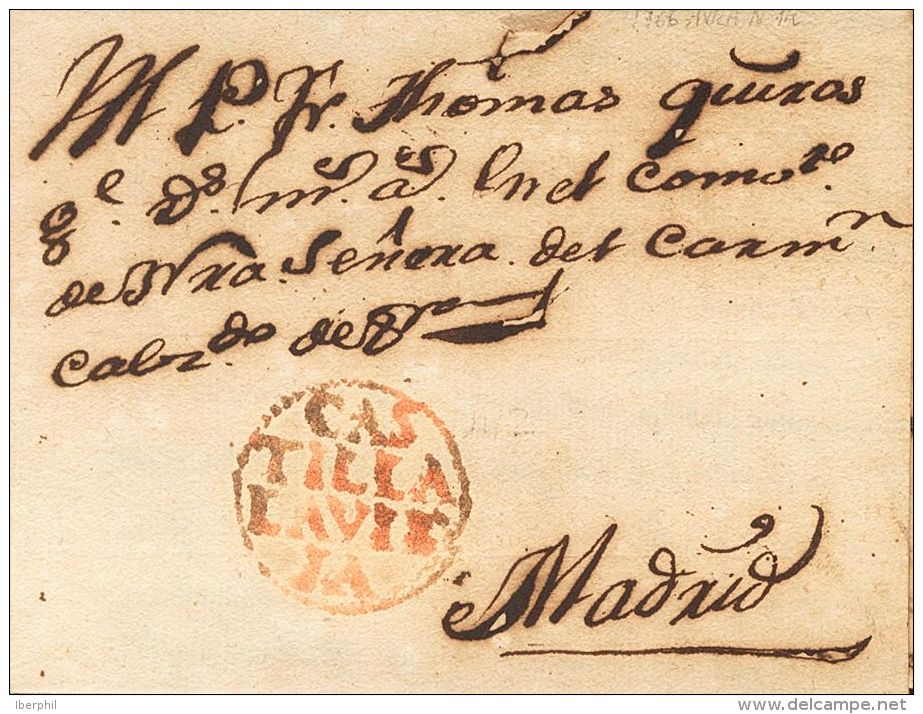 M P. Fr. Thomas Quiros
g.e D.s m.s a.s En el Comv.to
de Nra Señora del Carm.n
Calz.do de
CAS
TILLA
LAVIE
JA
Madrid
Iberphil
www.delcampe.net